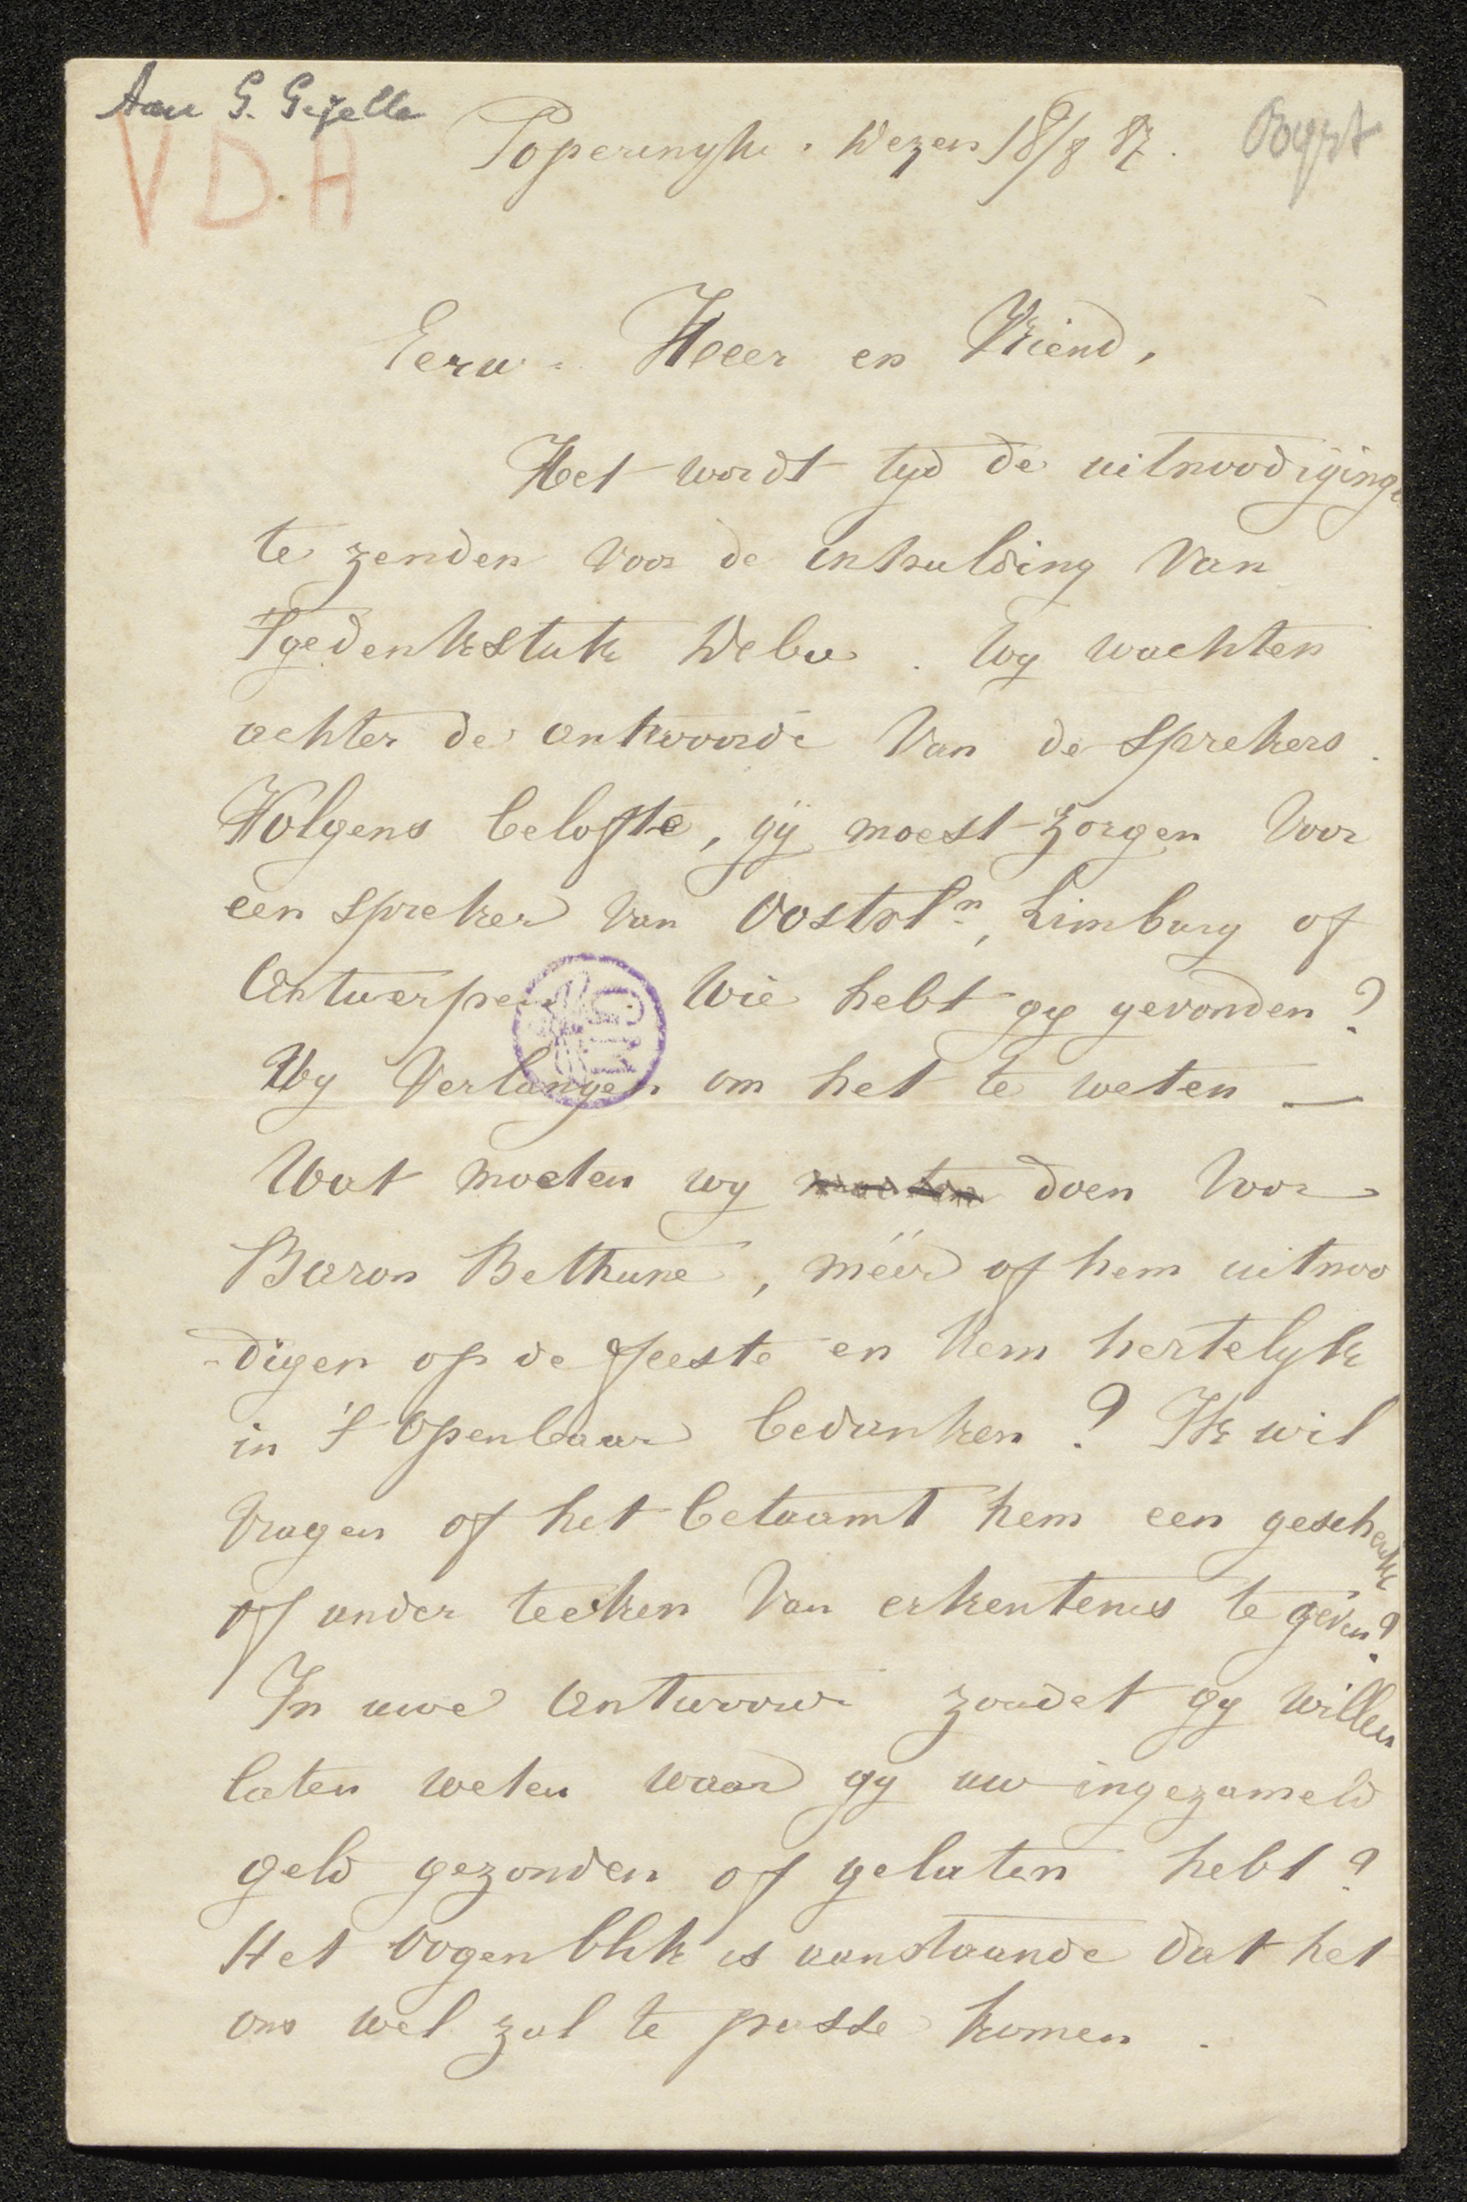 Aan G. Gezelle
VDH
Poperinghe. dezen 18/8 87.
Eerw. Heer en Vriend,
Het wordt tyd de uitnoodiginge
te zenden voor de inhulding van
't gedenkstuk Debo. Wy wachten
achter de antwoorde van de sprekers.
Volgens belofte, gij moest zorgen voor
een spreker van Oostvln, Limburg of
Antwerpen Wie hebt gy gevonden?
Wy verlangen om het te weten —
Wat moeten wy moeten doen voor
Baron Bethune, méér of hem uitnoo
-digen op de feeste en hem hertelyk
in 't openbaar bedanken? Ik wil
vragen of het betaamt hem een geschenk
of ander teeken van erkentenis te géven?
In uwe antwoorde zoudet gy willen
laten weten waar gy uw ingezameld
geld gezonden of gelaten hebt?
Het oogenblik is aanstaande dat het
ons wel zal te passe komen.